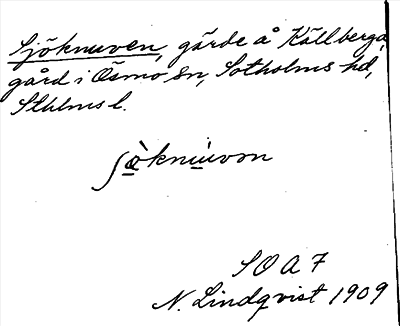 Sjöknuven, gärde å Källberga
gård i Ösmo sn, Sotholms hd,
Sthlms l.
ʃö̀knu̇vən
S O A 7
N. Lindqvist 1909